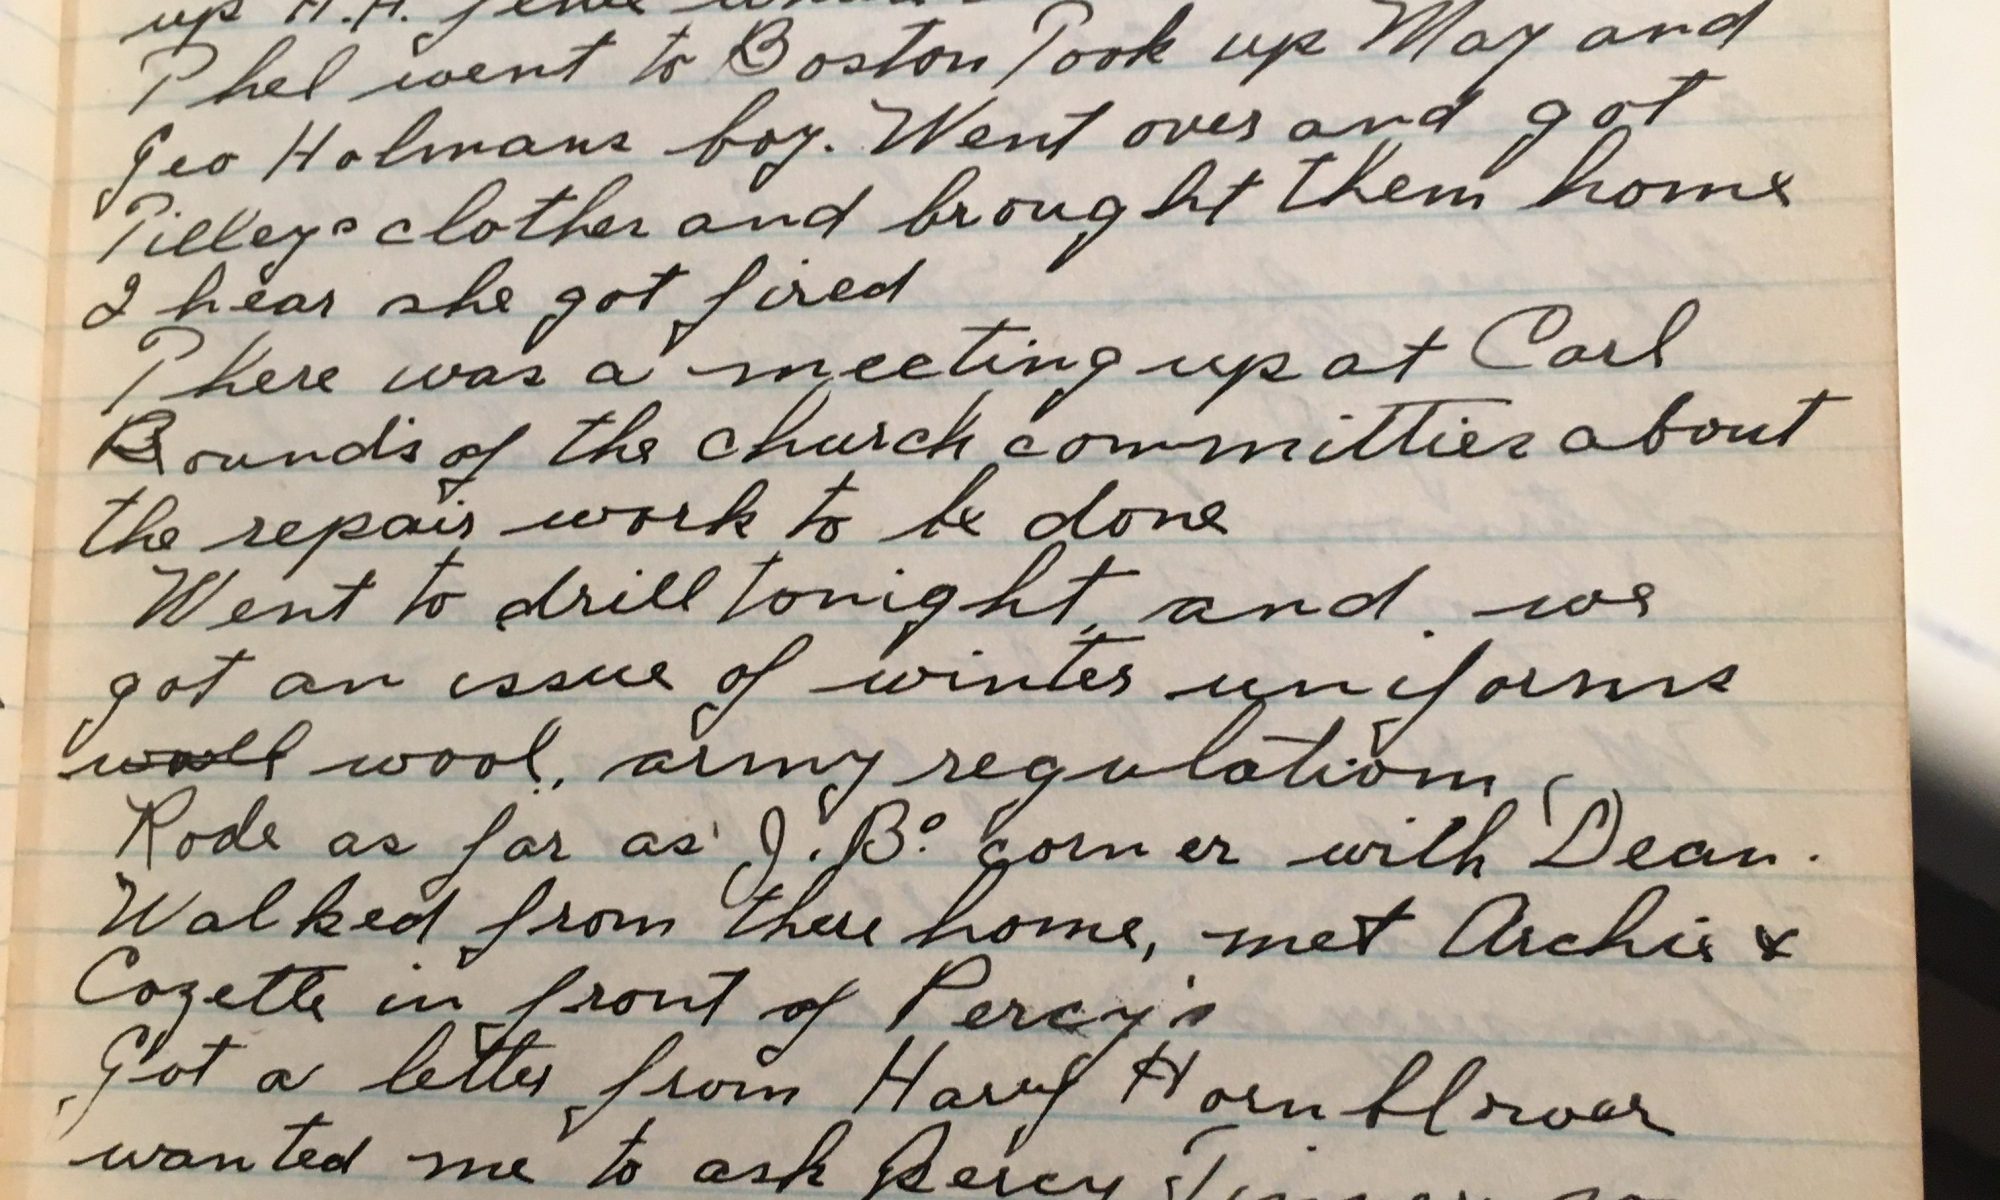 up H.H.
Phel went to Boston Took up May and
Geo Holmans boy. Went over and got
Tilleys clothes and brought them home
I hear she got fired
There was a meeting up at Carl
Bound's of the church committies about
the repair work to be done
Went to drill tonight, and we
got an issue of winter uniforms
woll wool, army regulation
Rode as far as J.B.s corner with Dean.
Walked from there home, met Archie &
Cozette in front of Percy's
Got a letter from Harry Hornblower
wanted me to ask Percy